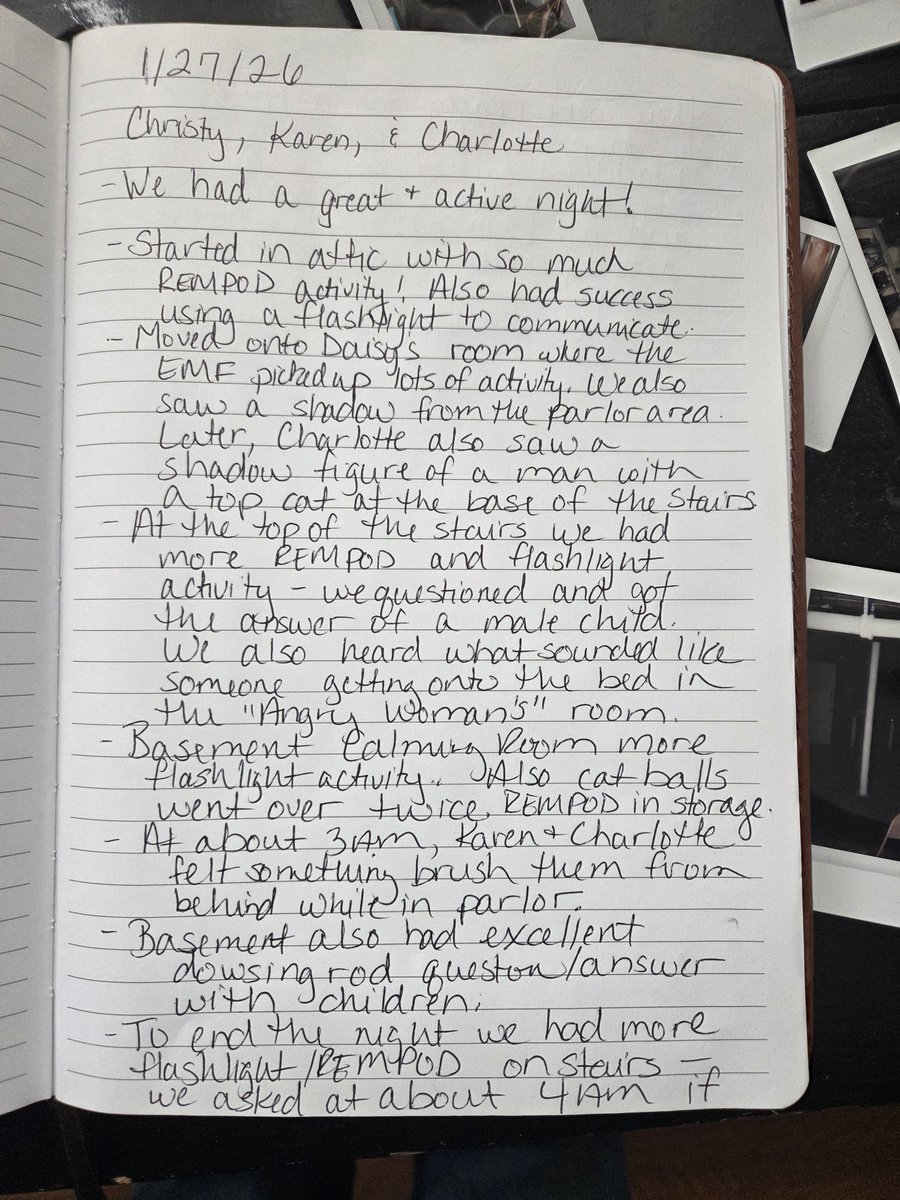 1/27/26
Christy, Karen, & Charlotte
- We had a great + active night!
- Started in attic with so much
REMPOD activity! Also had success
using a flashlight to communicate.
- Moved onto Daisy's room where the
EMF picked up lots of activity. We also
saw a shadow from the parlor area.
Later, Charlotte also saw a
shadow figure of a man with
a top cat at the base of the stairs
- At the top of the stairs we had
more REMPOD and flashlight
activity - we questioned and got
the answer of a male child.
We also heard what sounded like
someone getting onto the bed in
the "Angry Woman's" room.
- Basement Calming Room more
flashlight activity. Also cat balls
went over twice, REMPOD in storage.
- At about 3AM, Karen + Charlotte
felt something brush them from
behind while in parlor.
- Basement also had excellent
dowsing rod queston/answer
with children.
- To end the night we had more
flashlight/REMPOD on stairs -
we asked at about 4AM if